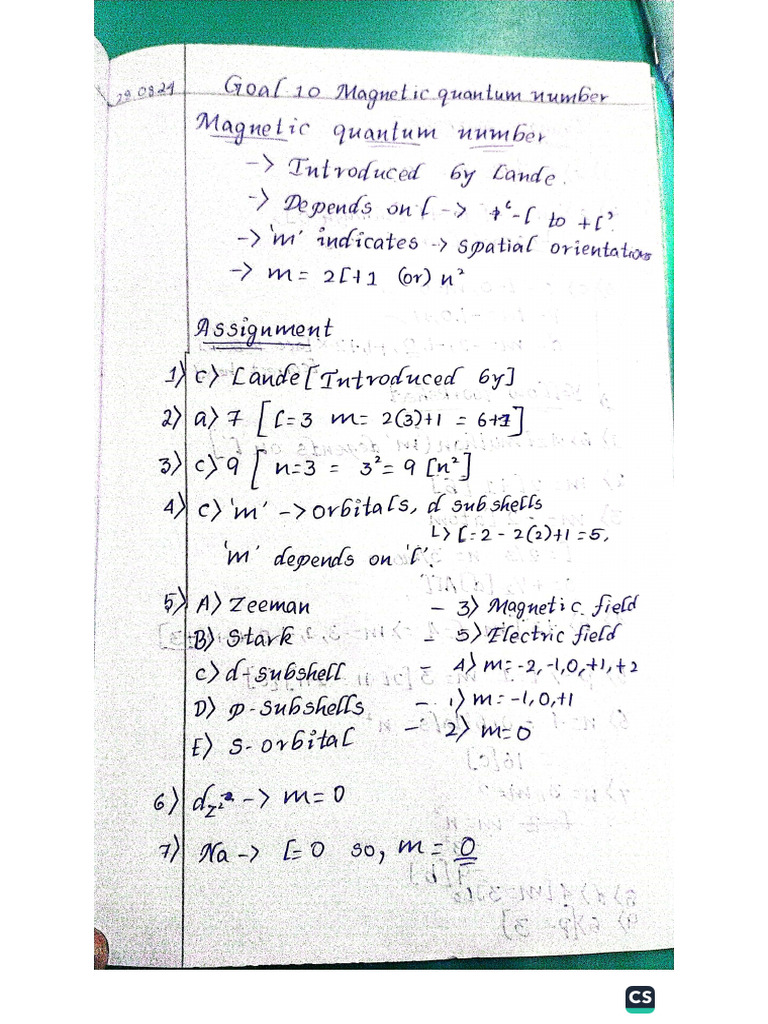 29.08.24
Goal 10 Magnetic quantum number
Magnetic quantum number
-> Introduced by Lande.
-> Depends on l -> '-l to +l'.
-> 'm' indicates -> spatial orientations
-> m = 2l+1 (or) n²
Assignment
1) c) Lande [Introduced by]
2) a) 7 [l=3 m= 2(3)+1 = 6+1]
3) c) 9 [n=3 = 3²= 9 [n²]
4) c) 'm' -> orbitals, d subshells
↳ l=2 - 2(2)+1 = 5,
'm' depends on 'l'.
5) A) Zeeman - 3) Magnetic field
B) Stark - 5) Electric field
C) d-subshell - 4) m= -2, -1, 0, +1, +2
D) p-subshells - 1) m= -1, 0, +1
E) S-orbital - 2) m=0
6) dz² -> m=0
7) Na -> l=0 so, m = 0
CS